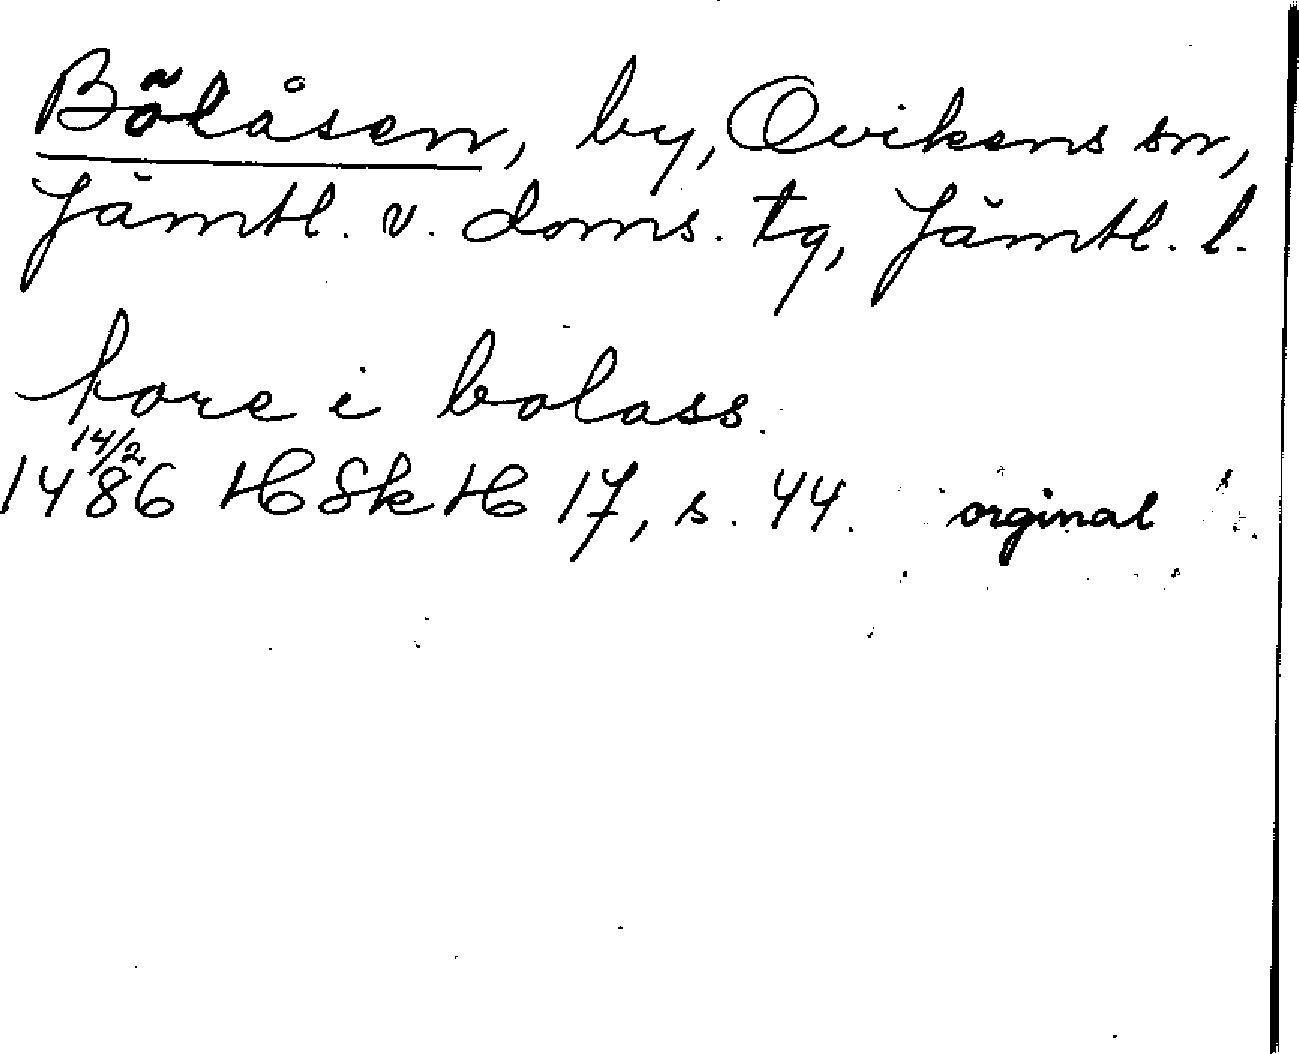 Bölåsen, by, Ovikens sn,
Jämtl. v. doms. tg, Jämtl. l.
fore i bolass.
14/2
1486 HSkH 17, s. 44. orginal